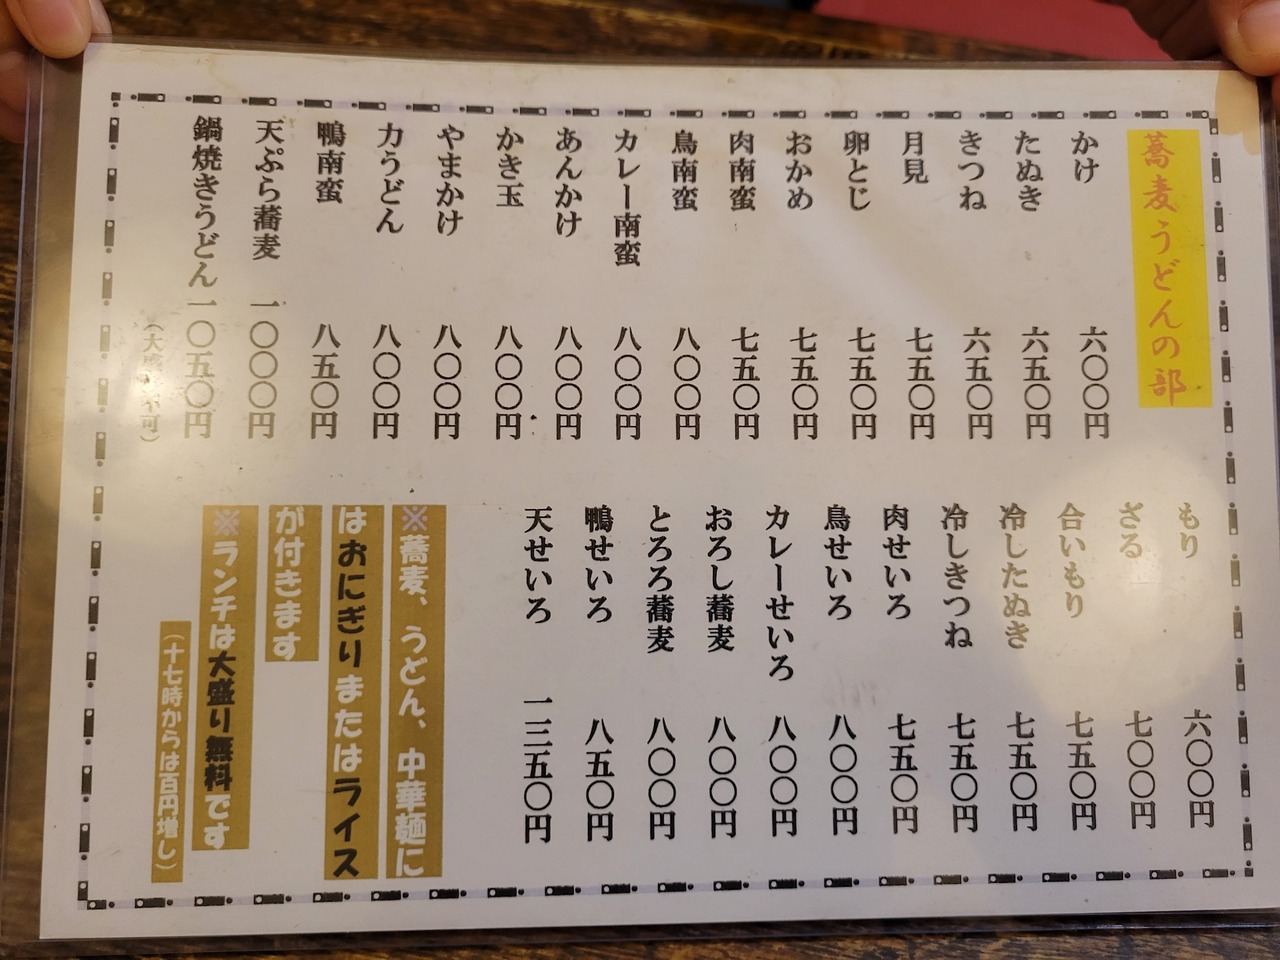 蕎麦うどんの部
かけ 六〇〇円
たぬき 六五〇円
きつね 六五〇円
月見 七五〇円
卵とじ 七五〇円
おかめ 七五〇円
肉南蛮 七五〇円
鳥南蛮 八〇〇円
カレー南蛮 八〇〇円
あんかけ 八〇〇円
かき玉 八〇〇円
やまかけ 八〇〇円
力うどん 八〇〇円
鴨南蛮 八五〇円
天ぷら蕎麦 一〇〇〇円
鍋焼きうどん 一〇五〇円
（大盛り不可）
もり 六〇〇円
ざる 七〇〇円
合いもり 七五〇円
冷したぬき 七五〇円
冷しきつね 七五〇円
肉せいろ 七五〇円
鳥せいろ 八〇〇円
カレーせいろ 八〇〇円
おろし蕎麦 八〇〇円
とろろ蕎麦 八〇〇円
鴨せいろ 八五〇円
天せいろ 一三五〇円
※蕎麦、うどん、中華麺に
はおにぎりまたはライス
が付きます
※ランチは大盛り無料です
（十七時からは百円増し）